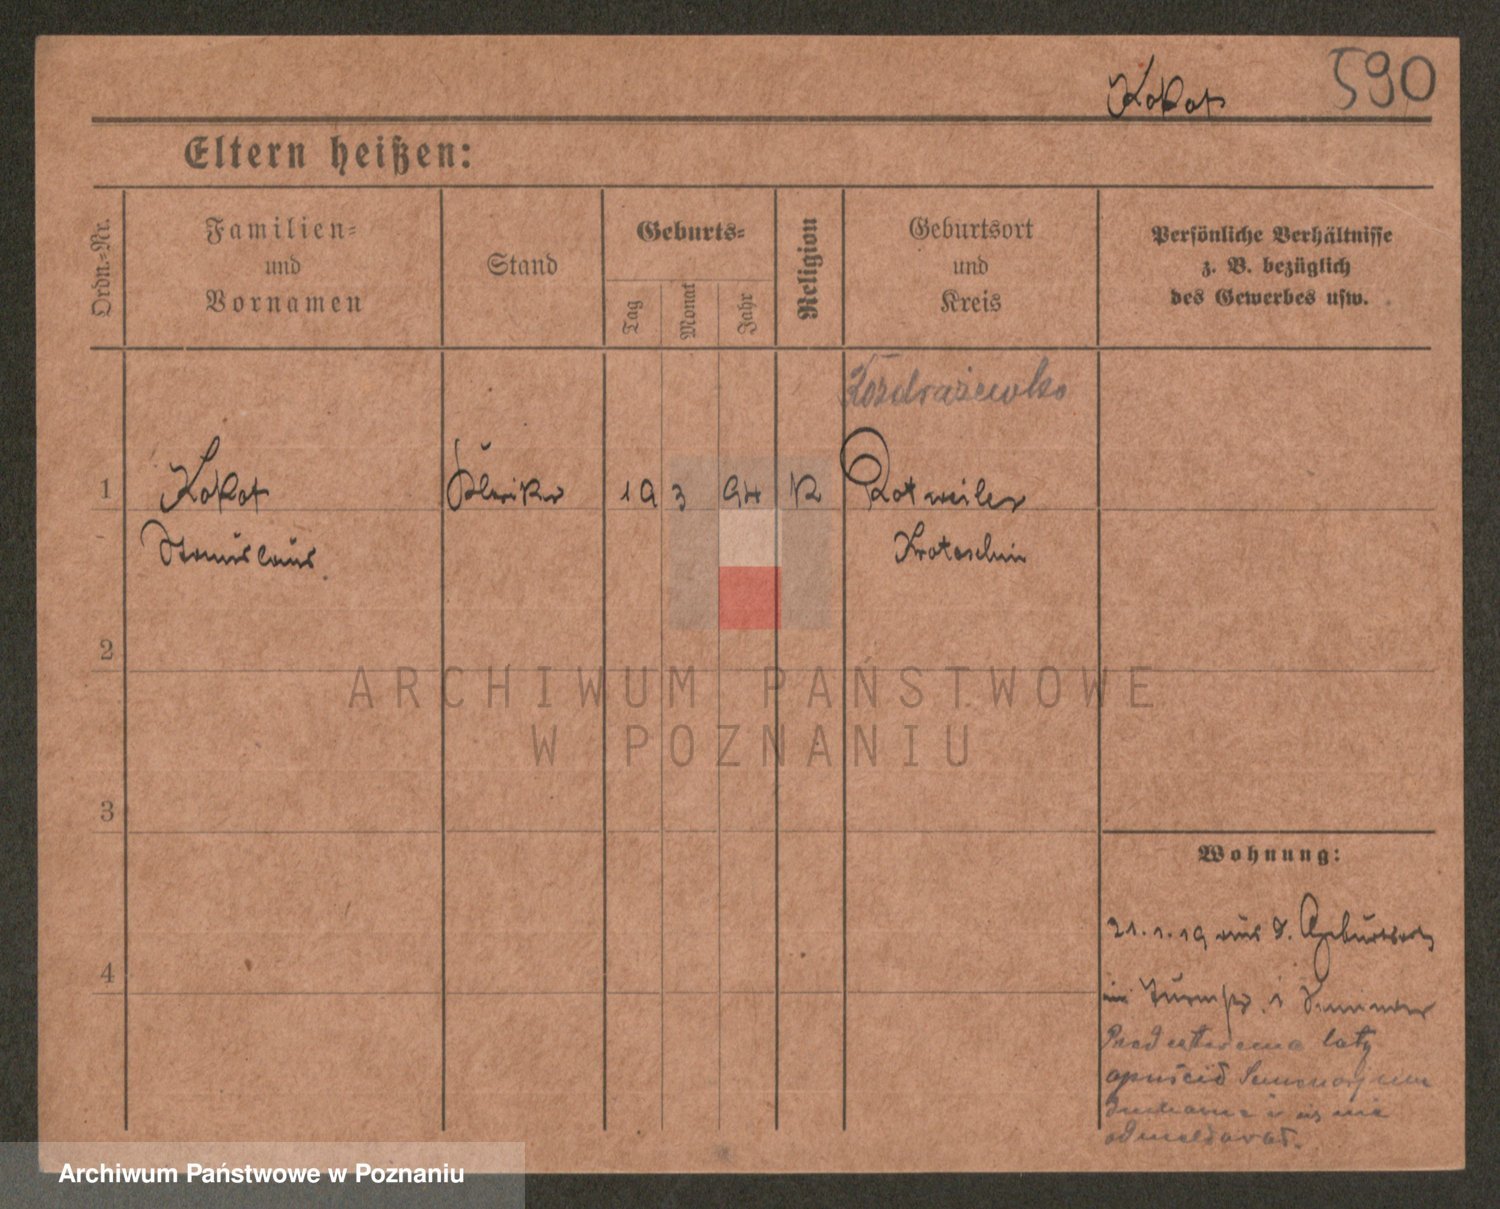 Kokot
590
Eltern heißen:
Ordn.-Nr.
Familien-
und
Vornamen
Stand
Geburts-
Tag
Monat
Jahr
Religion
Geburtsort
und
Kreis
Persönliche Verhältnisse
z. B. bezüglich
des Gewerbes usw.
1
Kokot
Stanislaus
Kleriker
19 3 94
K
Rozdrażewko
Rotweiler
Krotoschin
2
3
4
Wohnung:
21.1.19 aus d. Geburtsort
in i Seminar
Przed laty
opuścił Seminarjum
Duchowne i się nie
odmeldował.
ARCHIWUM PAŃSTWOWE
W POZNANIU
Archiwum Państwowe w Poznaniu